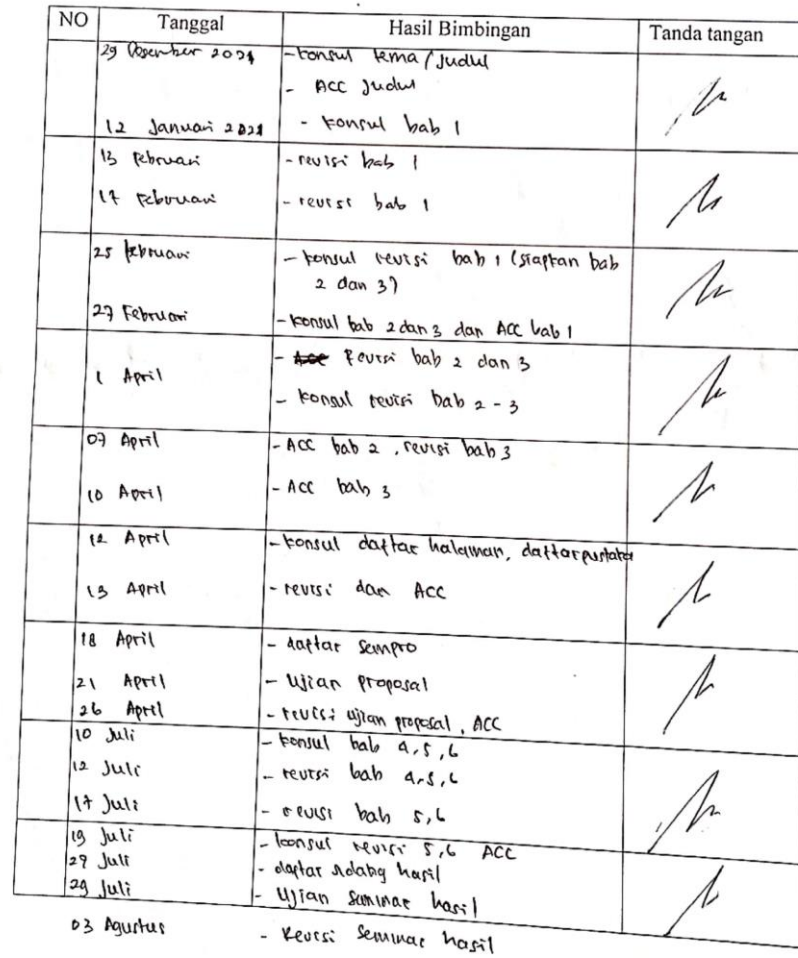 NO Tanggal Hasil Bimbingan Tanda tangan
29 Desember 2021 - konsul tema / Judul
- ACC Judul
12 Januari 2021 - konsul bab 1
13 Februari - revisi bab 1
17 Februari - revisi bab 1
25 februari - konsul revisi bab 1 (siapkan bab
2 dan 3)
27 Februari - konsul bab 2 dan 3 dan ACC bab 1
- Revisi bab 2 dan 3
1 April
- konsul revisi bab 2 - 3
07 April - ACC bab 2, revisi bab 3
10 April - ACC bab 3
12 April - konsul daftar halaman, daftar pustaka
13 April - revisi dan ACC
18 April - daftar sempro
21 April - Ujian proposal
26 April - revisi ujian proposal, ACC
10 Juli - konsul bab 4, 5, 6
12 Juli - revisi bab 4, 5, 6
17 Juli - revisi bab 5, 6
19 Juli - konsul revisi 5, 6 ACC
27 Juli - daftar sidang hasil
29 Juli - Ujian seminar hasil
03 Agustus - Revisi Seminar hasil